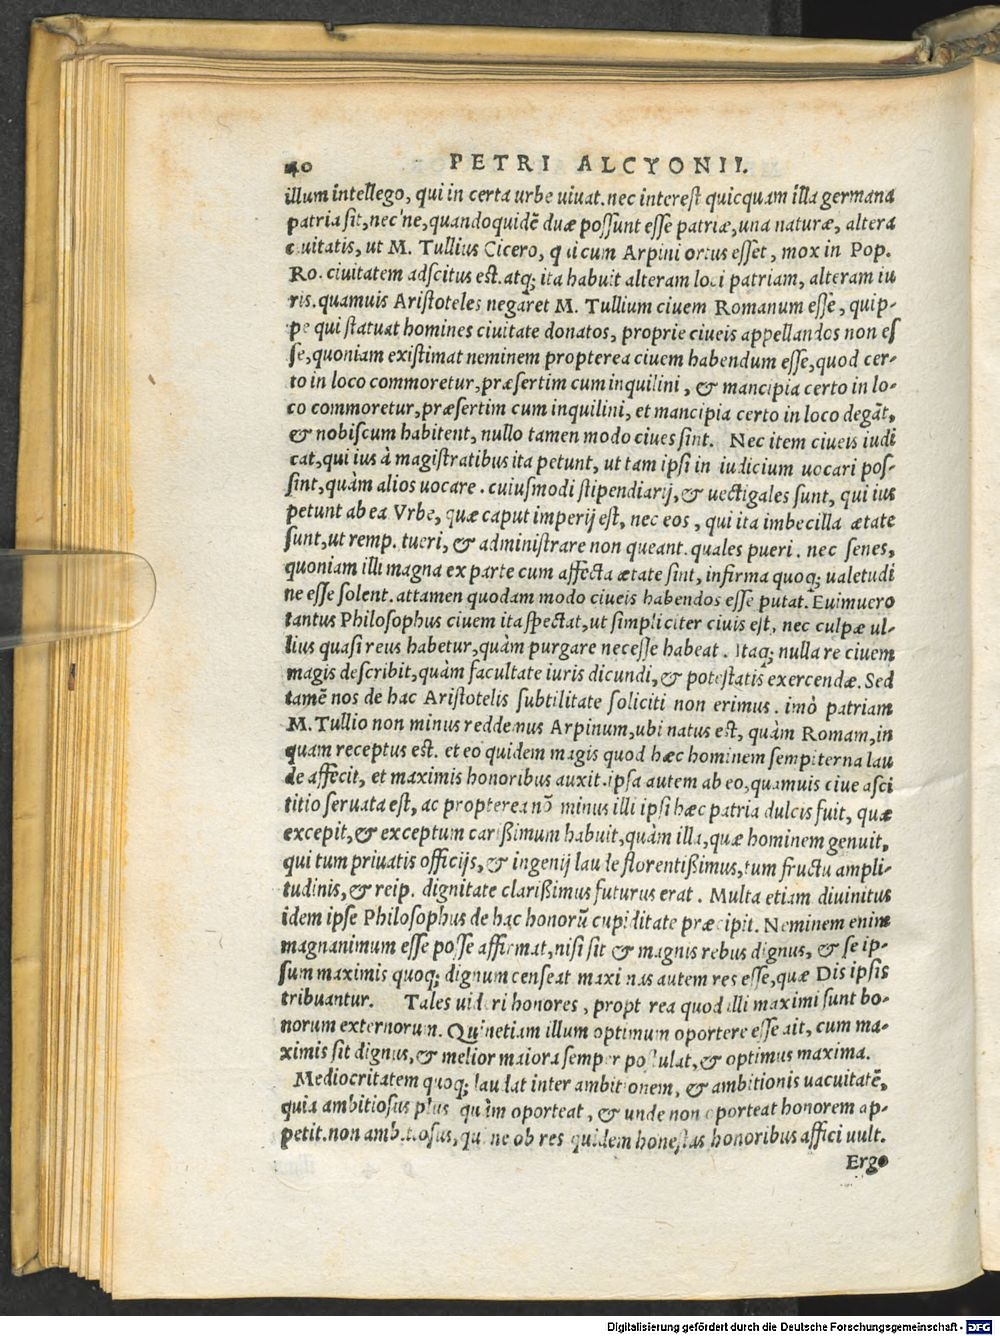 40 PETRI ALCYONII.
illum intellego, qui in certa urbe uiuat. nec interest quicquam illa germana
patria sit, nec'ne, quandoquidẽ duæ possunt esse patriæ, una naturæ, altera
ciuitatis, ut M. Tullius Cicero, qui cum Arpini ortus esset, mox in Pop.
Ro. ciuitatem adscitus est. atq; ita habuit alteram loci patriam, alteram iu
ris. quamuis Aristoteles negaret M. Tullium ciuem Romanum esse, quip-
pe qui statuat homines ciuitate donatos, proprie ciueis appellandos non es
se, quoniam existimat neminem propterea ciuem habendum esse, quod cer-
to in loco commoretur, præsertim cum inquilini, & mancipia certo in lo-
co commoretur, præsertim cum inquilini, et mancipia certo in loco degãt,
& nobiscum habitent, nullo tamen modo ciues sint. Nec item ciueis iudi
cat, qui ius à magistratibus ita petunt, ut tam ipsi in iudicium uocari pos-
sint, quàm alios uocare. cuiusmodi stipendiarij, & uectigales sunt, qui ius
petunt ab ea Vrbe, quæ caput imperij est, nec eos, qui ita imbecilla ætate
sunt, ut remp. tueri, & administrare non queant. quales pueri. nec senes,
quoniam illi magna ex parte cum affecta ætate sint, infirma quoq; ualetudi
ne esse solent. attamen quodam modo ciueis habendos esse putat. Euimuero
tantus Philosophus ciuem ita spectat, ut simpliciter ciuis est, nec culpæ ul-
lius quasi reus habetur, quàm purgare necesse habeat. Itaq; nulla re ciuem
magis describit, quàm facultate iuris dicundi, & potestatis exercendæ. Sed
tamẽ nos de hac Aristotelis subtilitate soliciti non erimus. imò patriam
M. Tullio non minus reddemus Arpinum, ubi natus est, quàm Romam, in
quam receptus est. et eo quidem magis quod hæc hominem sempiterna lau
de affecit, et maximis honoribus auxit. ipsa autem ab eo, quamuis ciue asci
titio seruata est, ac propterea nõ minus illi ipsi hæc patria dulcis fuit, quæ
excepit, & exceptum carißimum habuit, quàm illa, quæ hominem genuit,
qui tum priuatis officijs, & ingenij laude florentißimus, tum fructu ampli-
tudinis, & reip. dignitate clarißimus futurus erat. Multa etiam diuinitus
idem ipse Philosophus de hac honorũ cupiditate præcipit. Neminem enim
magnanimum esse posse affirmat, nisi sit & magnis rebus dignus, & se ip-
sum maximis quoq; dignum censeat maximas autem res esse, quæ Dis ipsis
tribuantur. Tales uideri honores, propterea quod illi maximi sunt bo-
norum externorum. Quinetiam illum optimum oportere esse ait, cum ma-
ximis sit dignus, & melior maiora semper postulat, & optimus maxima.
Mediocritatem quoq; laudat inter ambitionem, & ambitionis uacuitatẽ,
quia ambitiosus plus quàm oporteat, & unde non oporteat honorem ap-
petit. non ambitiosus, qui ne ob res quidem honestas honoribus affici uult.
Ergo
Digitalisierung gefördert durch die Deutsche Forschungsgemeinschaft - DFG